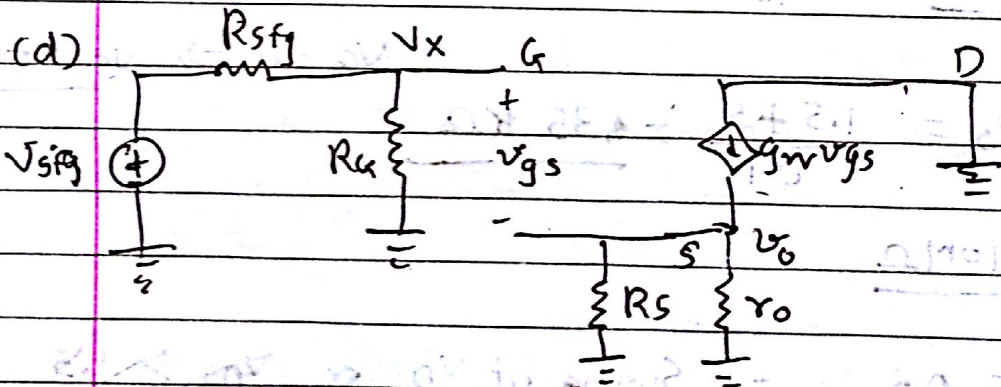 (d)
Rsfg
Vx
G
D
+
Vsig
+
RG
vgs
gmvgs
-
S
vo
Rs
ro